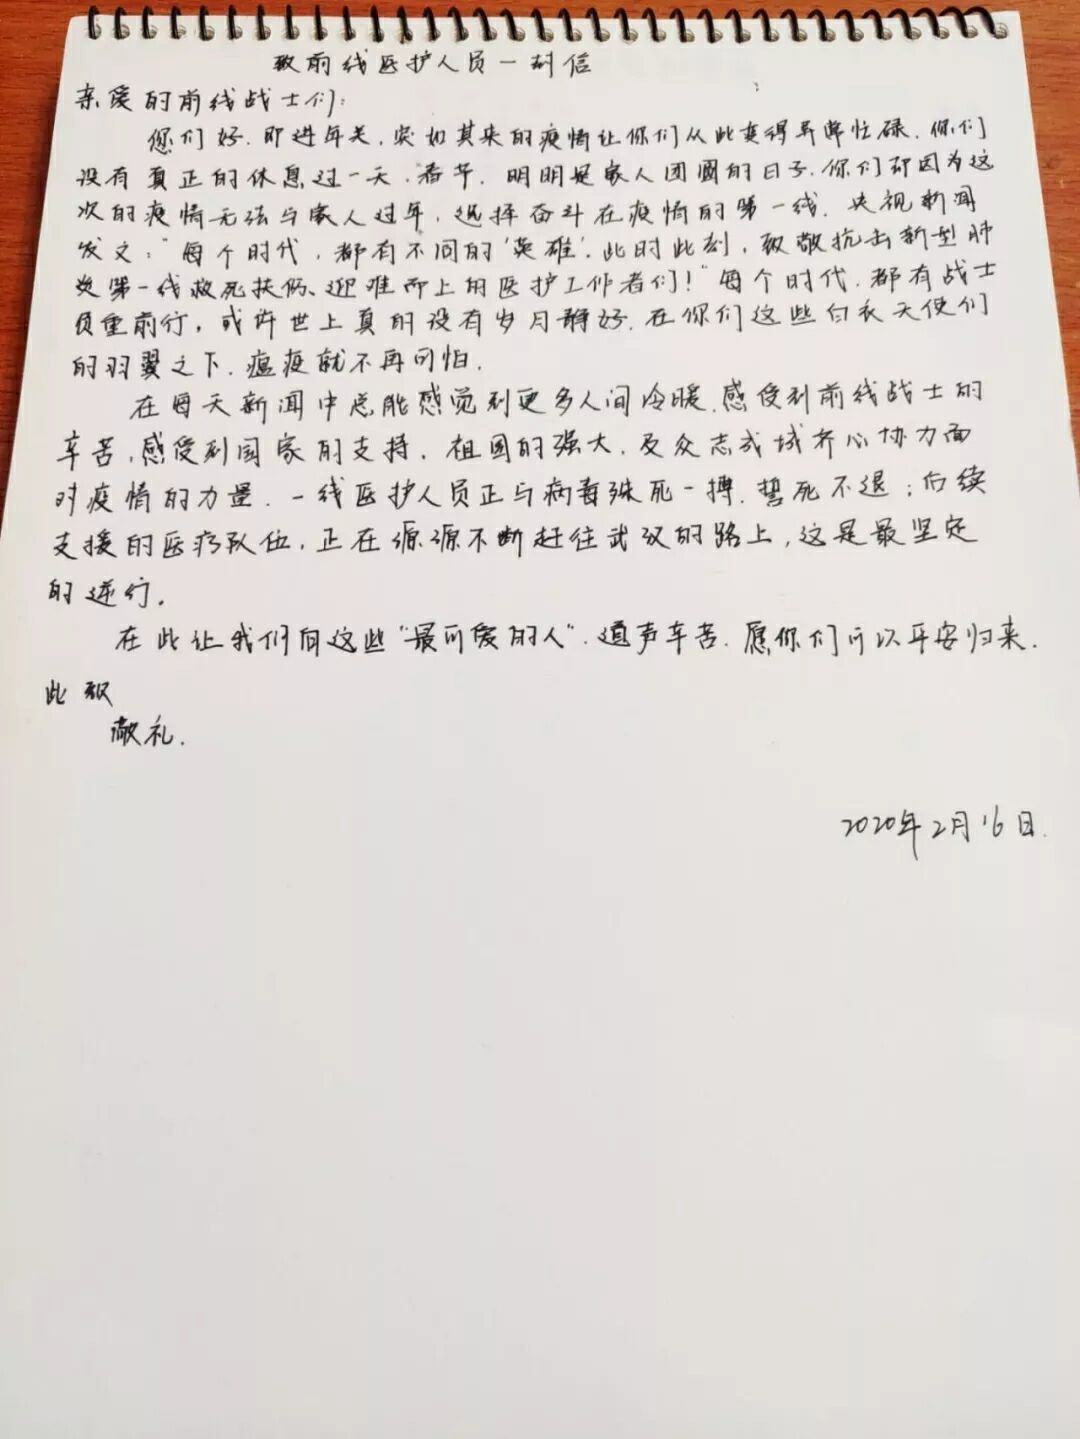 致前线医护人员一封信
亲爱的前线战士们：
您们好.即进年关,突如其来的疫情让你们从此变得异常忙碌.你们
没有真正的休息过一天.春节.明明是家人团圆的日子.你们却因为这
次的疫情无法与家人过年,选择奋斗在疫情的第一线.央视新闻
发文:“每个时代,都有不同的‘英雄’.此时此刻,致敬抗击新型肺
炎第一线救死扶伤、迎难而上的医护工作者们!”每个时代.都有战士
负重前行,或许世上真的没有岁月静好.在你们这些白衣天使们
的羽翼之下.瘟疫就不再可怕.
在每天新闻中总能感觉到更多人间冷暖.感受到前线战士的
辛苦,感受到国家的支持.祖国的强大.及众志成城齐心协力面
对疫情的力量.一线医护人员正与病毒殊死一搏.誓死不退;后续
支援的医疗队伍,正在源源不断赶往武汉的路上,这是最坚定
的逆行.
在此让我们向这些“最可爱的人”.道声辛苦.愿你们可以平安归来.
此致
敬礼.
2020年2月16日.